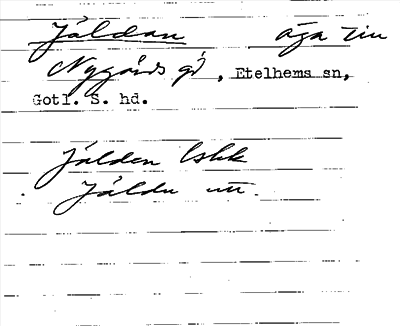 Jäldan äga
Nygårds gd, Etelhems sn,
Gotl. S. hd.
Jälden lskk
Jäldu